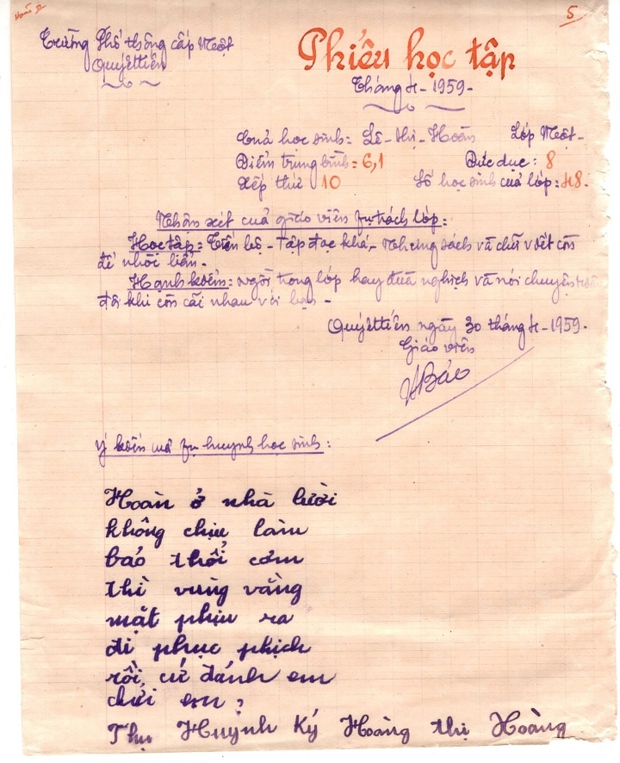 5
Trường Phổ thông cấp Một
Quyết tiến
Phiếu học tập
Tháng 4 - 1959 -
Của học sinh: Lê - thị - Hoàn Lớp Một -
Điểm trung bình = 6,1 Đức dục : 8
Xếp thứ 10 Số học sinh của lớp : 48 -
Nhận xét của giáo viên phụ trách lớp :
Học tập = Tiến bộ - Tập đọc khá - Nhưng sách và chữ viết còn
để nhòi bẩn -
Hạnh kiểm : Ngồi trong lớp hay đùa nghịch và nói chuyện
đôi khi còn cãi nhau với bạn -
Quyết tiến ngày 30 tháng 4 - 1959 -
Giáo viên
Bảo
Ý kiến của fụ huynh học sinh :
Hoàn ở nhà lười
không chịu làm
bảo thổi cơm
thì vùng vằng
mặt phịu ra
đi phục phịch
rồi cứ đánh em
chửi em ?
Thụ Huynh Ký Hoàng thị Hoàng